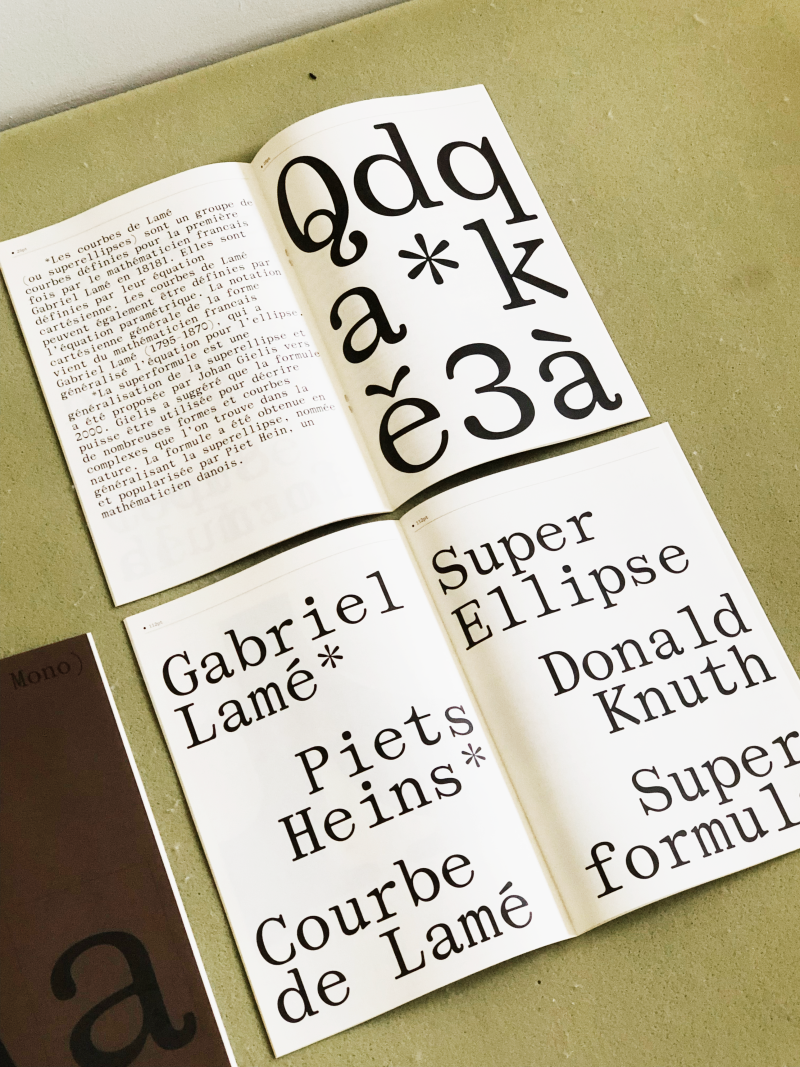 *Les courbes de Lamé
(ou superellipses) sont un groupe de
courbes définies pour la première
fois par le mathématicien francais
Gabriel Lamé en 18181. Elles sont
définies par leur équation
cartésienne. Les courbes de Lamé
peuvent également être définies par
l'équation paramétrique. La notation
cartésienne générale de la forme
vient du mathématicien francais
Gabriel Lamé (1795-1870), qui a
généralisé l'équation pour l'ellipse.
*La superformule est une
généralisation de la superellipse et
a été proposée par Johan Gielis vers
2000. Gielis a suggéré que la formule
puisse être utilisée pour décrire
de nombreuses formes et courbes
complexes que l'on trouve dans la
nature. La formule a été obtenue en
généralisant la superellipse, nommée
et popularisée par Piet Hein, un
mathématicien danois.
Qdq
a*k
ě3à
Gabriel
Lamé*
Piets
Heins*
Courbe
de Lamé
132pt
Super
Ellipse
Donald
Knuth
Super
formul
Mono)
a